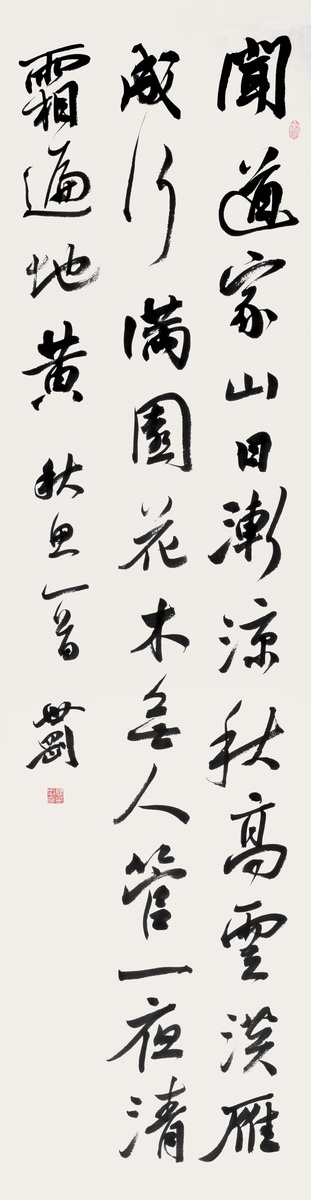 聞道家山日漸涼秋高雲淡雁
成行滿園花木無人管一夜清
霜遍地黄 秋思一首 世剛